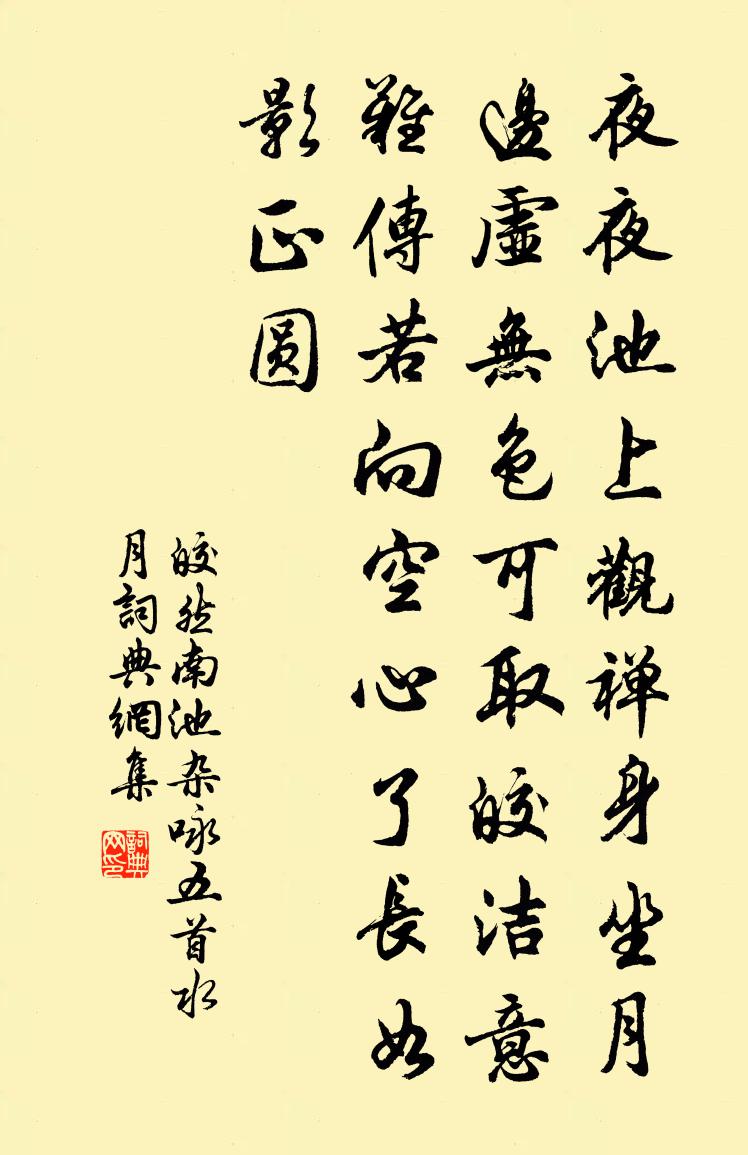 夜夜池上觀禅身坐月
邊虛無色可取皎洁意
難傳若向空心了長如
影正圆
皎然南池杂咏五首水
月詞典網集
詞典
网印